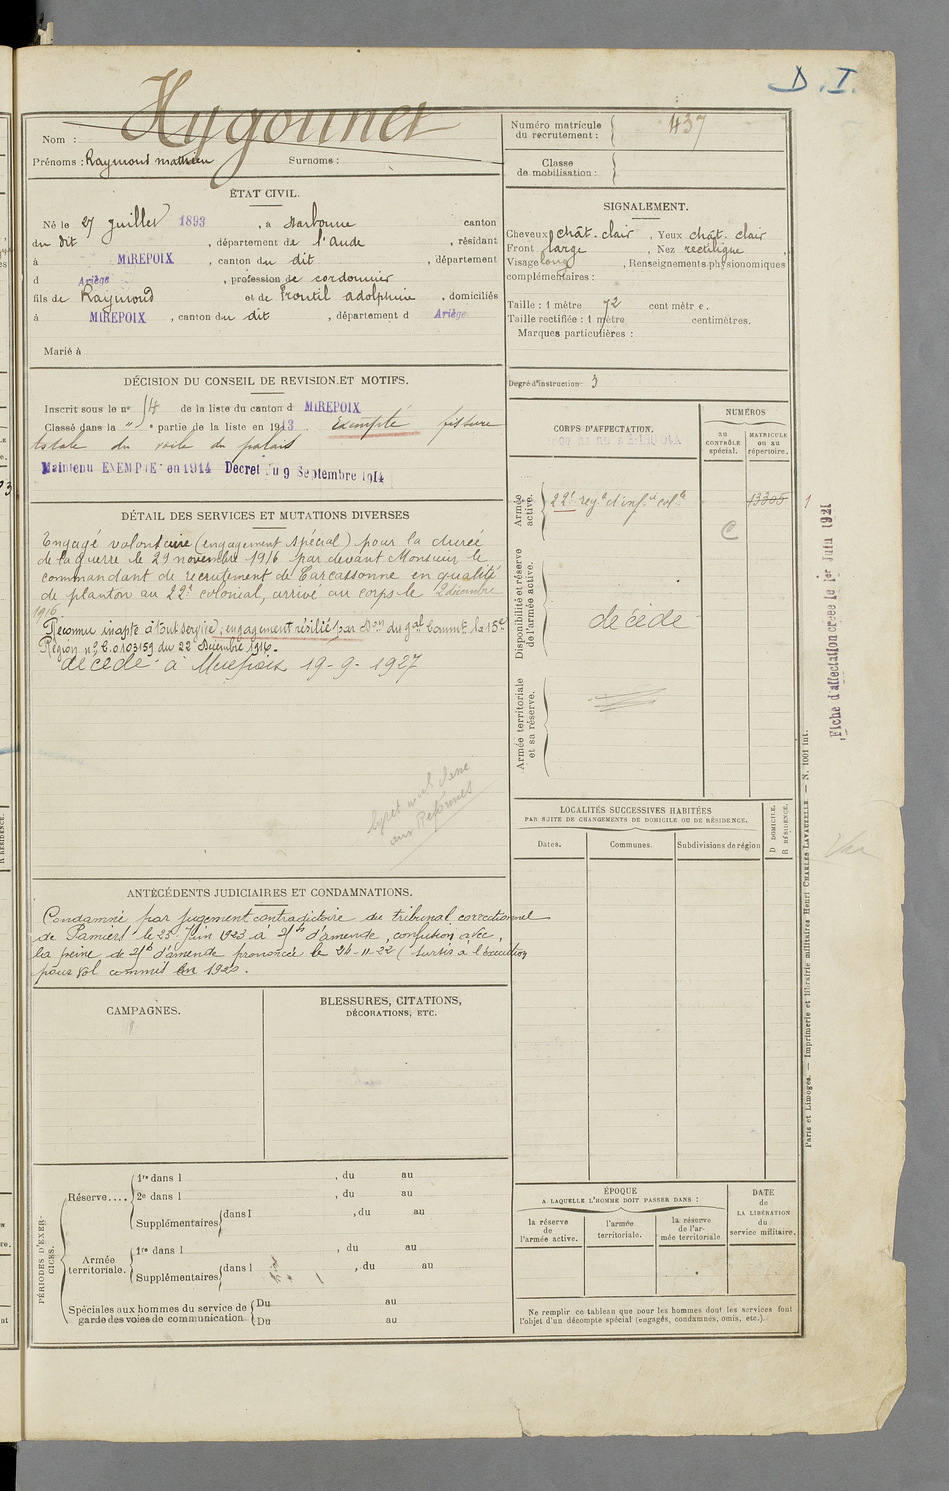 D. I.
Hygounet
Nom :
Prénoms : Raymond mathieu Surnoms :
Numéro matricule du recrutement : 437
Classe de mobilisation :
ÉTAT CIVIL.
Né le 27 juillet 1893, à Narbonne canton
du dit, département de l'aude, résidant
à MIREPOIX, canton du dit, département
d Ariège, profession de cordonnier
fils de Raymond et de Frontil adolphine, domiciliés
à MIREPOIX, canton du dit, département d Ariège
Marié à
SIGNALEMENT.
Cheveux chât. clair, Yeux chât. clair
Front large, Nez rectiligne
Visage long, Renseignements physionomiques
complémentaires :
Taille : 1 mètre 72 centimètre.
Taille rectifiée : 1 mètre centimètres.
Marques particulières :
Degré d'instruction : 3
DÉCISION DU CONSEIL DE REVISION ET MOTIFS.
Inscrit sous le n° 14 de la liste du canton d MIREPOIX
Classé dans la " e partie de la liste en 1913. Exempté fissure
totale du voile du palais
Maintenu EXEMPTÉ en 1914 Decret du 9 Septembre 1914
DÉTAIL DES SERVICES ET MUTATIONS DIVERSES
Engagé volontaire (engagement spécial) pour la durée
de la guerre le 29 novembre 1916 par devant Monsieur le
commandant de recrutement de Carcassonne en qualité
de planton au 22e colonial, arrivé au corps le 2 décembre
1916
Reconnu inapte à tout service, engagement résilié par Don du gal Commt la 15e
Région n° C.0103159 du 22 Décembre 1916.
décédé à Mirepoix 19-9-1927
aux Réformés
CORPS D'AFFECTATION.
NUMÉROS
au CONTRÔLE spécial.
MATRICULE ou au répertoire.
Armée active.
22e regt d'infie colle
13305
C
Disponibilité et réserve de l'armée active.
décédé
Armée territoriale et sa réserve.
Fiche d'affectation créée le 1er Juin 1921
LOCALITÉS SUCCESSIVES HABITÉES
PAR SUITE DE CHANGEMENTS DE DOMICILE OU DE RÉSIDENCE.
Dates.
Communes.
Subdivisions de région
D DOMICILE.
R RÉSIDENCE.
ANTÉCÉDENTS JUDICIAIRES ET CONDAMNATIONS.
Condamné par jugement contradictoire du tribunal correctionnel
de Pamiers le 25 Juin 1923 à d'amende, confusion avec
la peine de d'amende prononcée le 24-11-22 (sursis à l'exécution
pour vol commis en 1920.
CAMPAGNES.
BLESSURES, CITATIONS,
DÉCORATIONS, ETC.
PÉRIODES D'EXERCICES.
Réserve....
1re dans l , du au
2e dans l , du au
Supplémentaires dans l , du au
Armée territoriale.
1re dans l , du au
Supplémentaires dans l , du au
Spéciales aux hommes du service de garde des voies de communication
Du au
Du au
ÉPOQUE
A LAQUELLE L'HOMME DOIT PASSER DANS :
la réserve de l'armée active.
l'armée territoriale.
la réserve de l'armée territoriale
DATE de LA LIBÉRATION du service militaire.
Ne remplir ce tableau que pour les hommes dont les services font
l'objet d'un décompte spécial (engagés, condamnés, omis, etc.).
Paris et Limoges. — Imprimerie et librairie militaires Henri CHARLES LAVAUZELLE. — N. 1001 int.